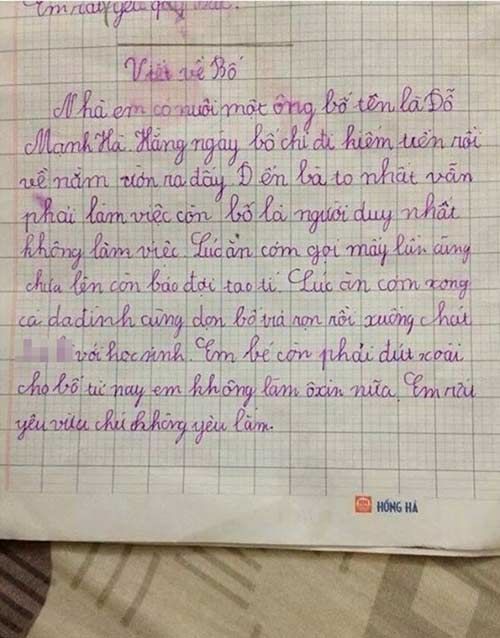 Em rất yêu quý
Viết về Bố
Nhà em có nuôi một ông bố tên là Đỗ
Mạnh Hà. Hằng ngày bố chỉ đi kiếm tiền rồi
về nằm ườn ra đấy. Đến bà to nhất vẫn
phải làm việc còn bố là người duy nhất
không làm việc. Lúc ăn cơm gọi mấy lần cũng
chưa lên còn bảo đợi tao tí. Lúc ăn cơm xong
cả da đình cùng dọn bố trả rọn rồi xuống chat
với học sinh. Em bé còn phải đút xoài
cho bố từ nay em không làm ôxin nữa. Em rất
yêu vừa chứ không yêu lắm.
HỒNG HÀ